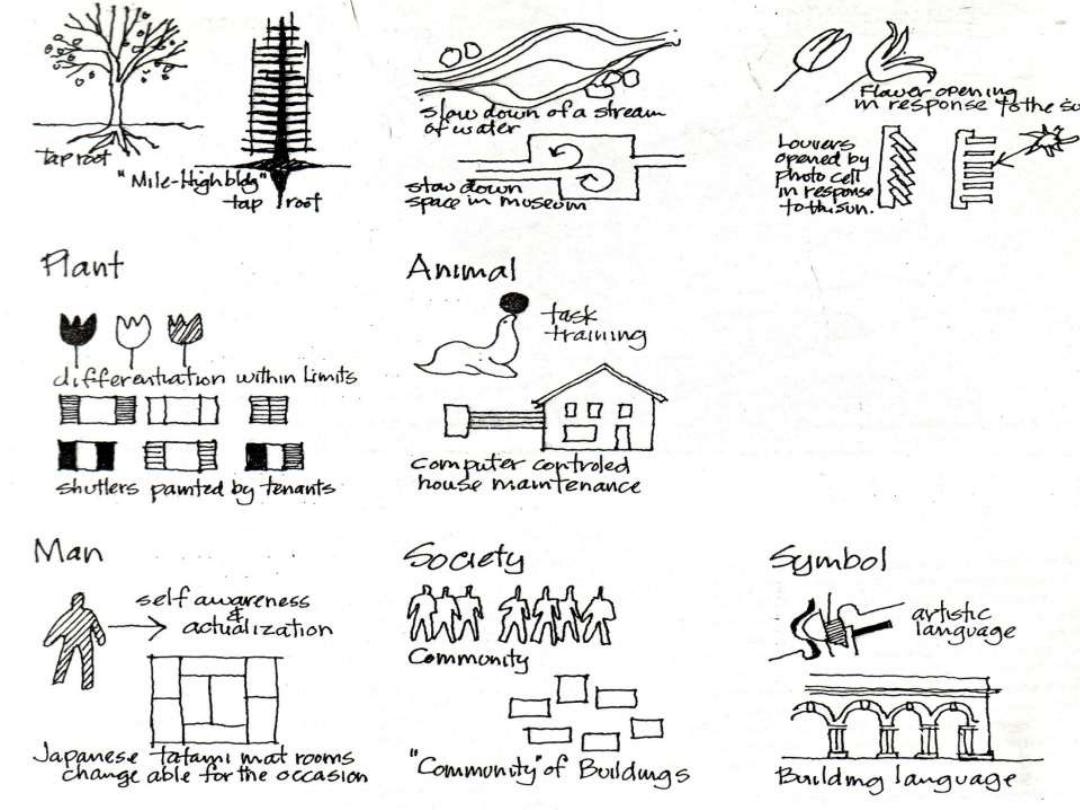 tap root
"Mile-High bldg"
tap root
slow down of a stream
of water
slow down
space in museum
Flower opening
in response to the su
Louvers
opened by
photo cell
in response
to the sun.
Plant
differentiation within limits
shutters painted by tenants
Animal
task
training
computer controled
house maintenance
Man
self awareness
&
actualization
Japanese tatami mat rooms
change able for the occasion
Society
Community
"Community" of Buildings
Symbol
artistic
language
Building language